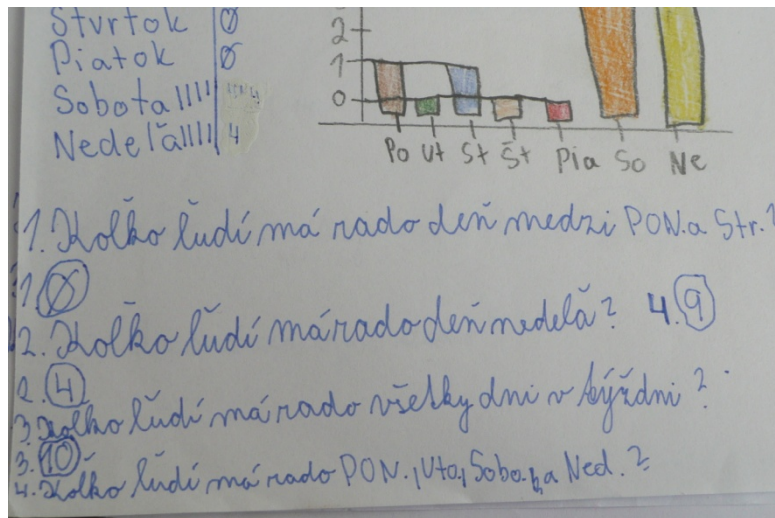 Štvrtok 0
Piatok 0
Sobota IIII 4
Nedeľa IIII 4
2
1
0
Po Ut St Št Pia So Ne
1. Koľko ľudí má rado deň medzi PON. a Str.?
1. 0
2. Koľko ľudí má rado deň nedeľa? 4. 9
2. 4
3. Koľko ľudí má rado všetky dni v týždni?
3. 10
4. Koľko ľudí má rado PON., Uto, Sobo. a Ned.?